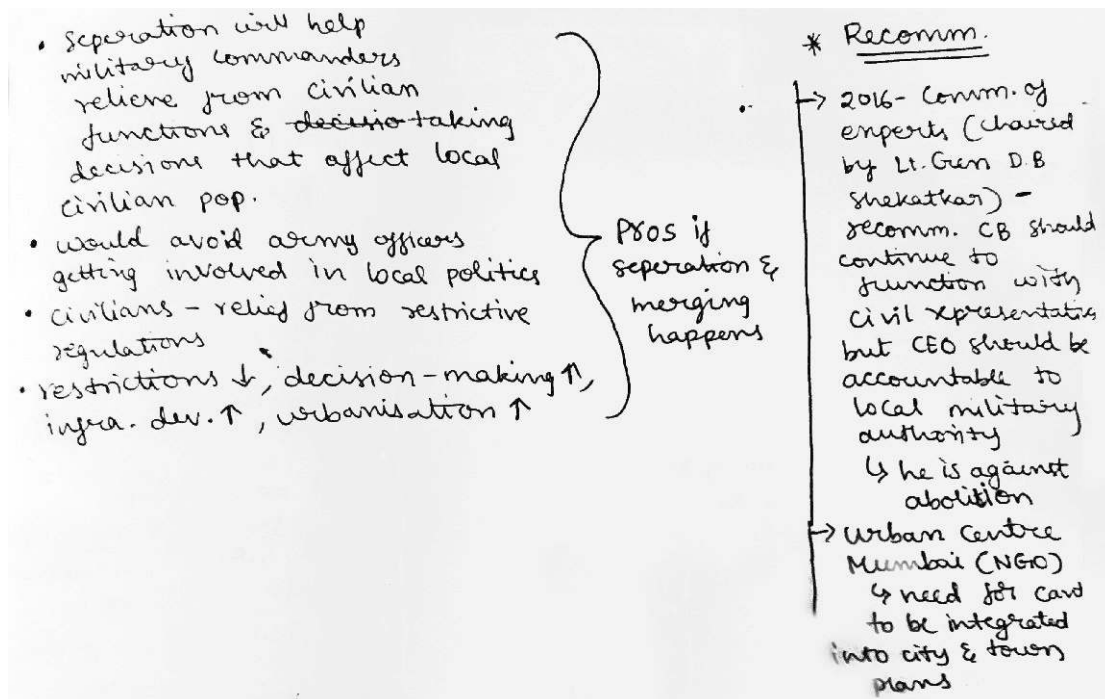 • seperation will help
military commanders
relieve from civilian
functions & decisio taking
decisions that affect local
civilian pop.
• would avoid army officers
getting involved in local politics
• civilians - relief from restrictive
regulations
• restrictions ↓, decision-making ↑,
infra. dev. ↑, urbanisation ↑
Pros if
seperation &
merging
happens
* Recomm.
→ 2016 - Comm. of
experts (chaired
by Lt. Gen D.B
Shekatkar) -
recomm. CB should
continue to
function with
civil representatives
but CEO should be
accountable to
local military
authority
↳ he is against
abolition
→ Urban Centre
Mumbai (NGO)
↳ need for
to be integrated
into city & town
plans